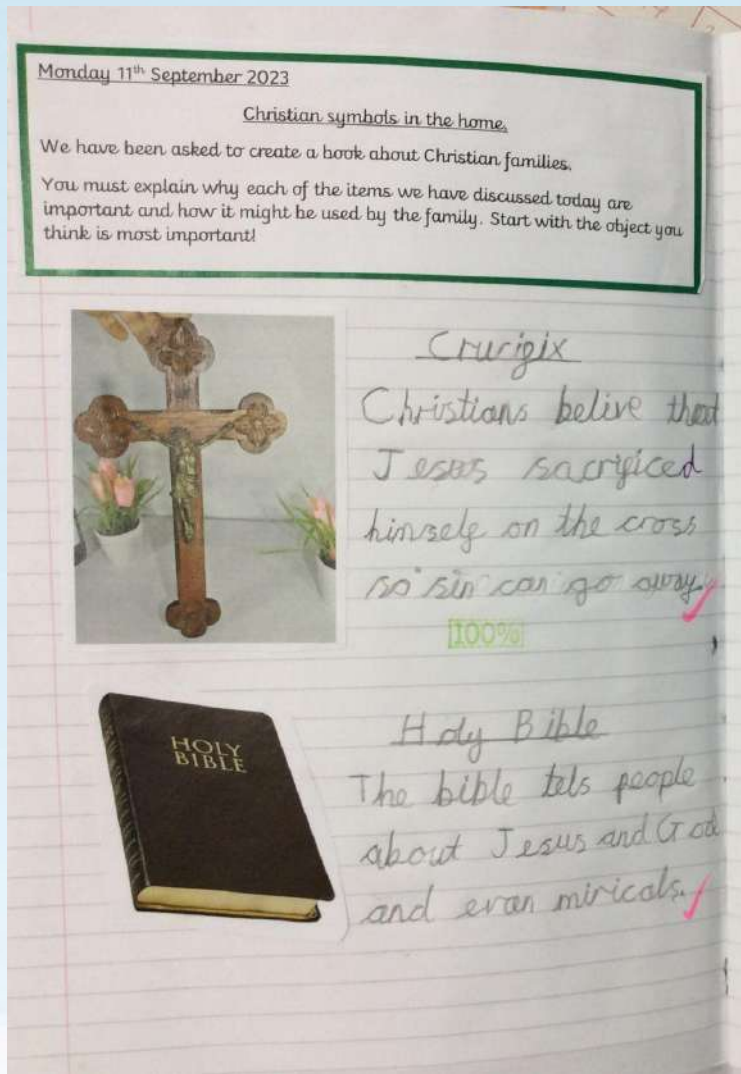 Monday 11th September 2023
Christian symbols in the home.
We have been asked to create a book about Christian families.
You must explain why each of the items we have discussed today are
important and how it might be used by the family. Start with the object you
think is most important!
Crucifix
Christians belive that
Jesus sacrificed
himself on the cross
so sin can go away.
100%
HOLY
BIBLE
Holy Bible
The bible tels people
about Jesus and God
and evan miricals.